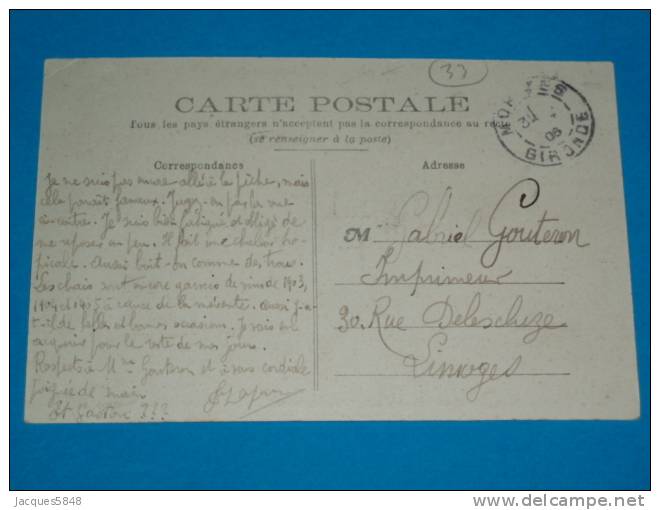 33
CARTE POSTALE
Tous les pays étrangers n'acceptent pas la correspondance au recto
(se renseigner à la poste)
GIRONDE
08
Correspondance
Adresse
Je ne suis pas encore allé à la pêche, mais
cela paraît fameux. Jugez-en par la vue
ci-contre. Je suis bien fatigué et obligé de
me reposer un peu. Il fait une chaleur tro-
picale. Aussi boit-on comme des trous.
Les chais sont encore garnis de vins de 1903,
1904 et 1905 à cause de la mévente. Aussi y a-
t-il de belles et bonnes occasions. Je vais en
acquérir pour le reste de mes jours.
Respects à Mme Gouteron et à vous cordiale
poignée de main
Et Gaston ???
M Gabriel Gouteron
Imprimeur
30. Rue Delescluze
Limoges
Jacques5848
delcampe.net